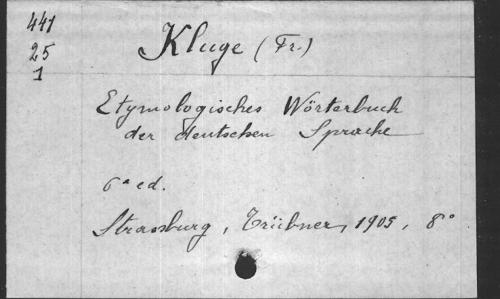 441
25
1
Kluge (Fr.)
Etymologisches Wörterbuch
der deutschen Sprache
6a ed.
Strassburg, Trübner, 1905, 8°